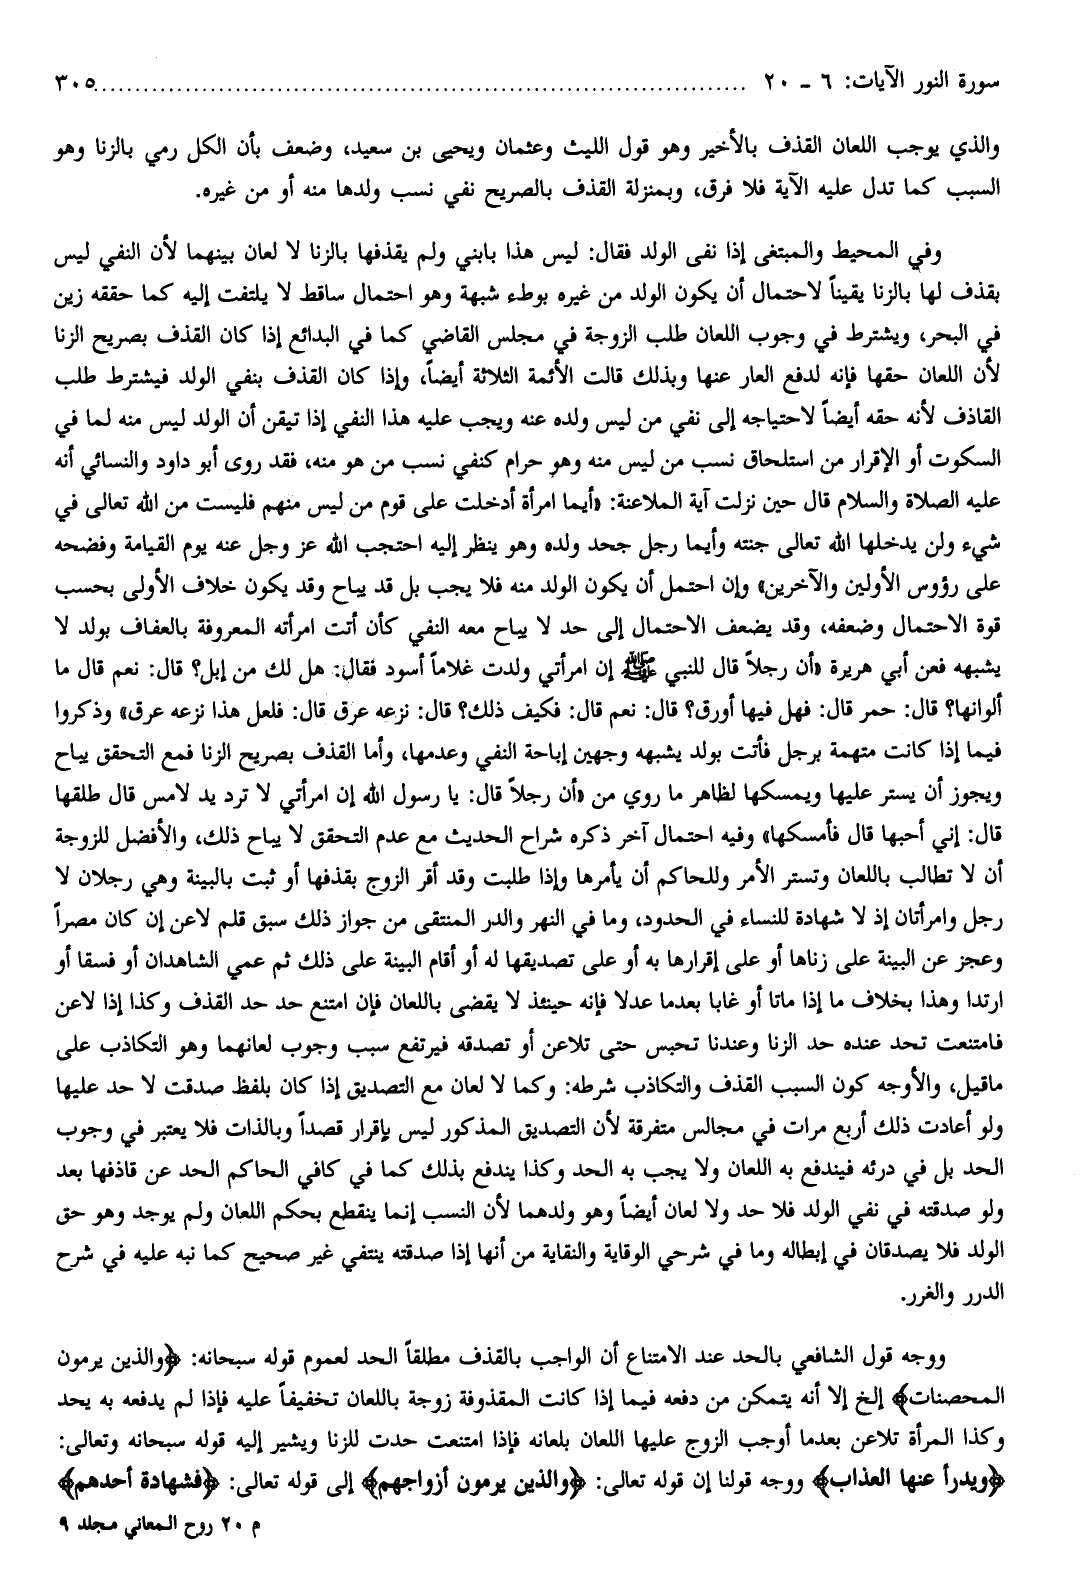 سورة النور الآيات: ٦ ـ ٢٠ ................................................................................ ٣٠٥
والذي يوجب اللعان القذف بالأخير وهو قول الليث وعثمان ويحيى بن سعيد، وضعف بأن الكل رمي بالزنا وهو
السبب كما تدل عليه الآية فلا فرق، وبمنزلة القذف بالصريح نفي نسب ولدها منه أو من غيره.
وفي المحيط والمبتغى إذا نفى الولد فقال: ليس هذا بابني ولم يقذفها بالزنا لا لعان بينهما لأن النفي ليس
بقذف لها بالزنا يقيناً لاحتمال أن يكون الولد من غيره بوطء شبهة وهو احتمال ساقط لا يلتفت إليه كما حققه زين
في البحر، ويشترط في وجوب اللعان طلب الزوجة في مجلس القاضي كما في البدائع إذا كان القذف بصريح الزنا
لأن اللعان حقها فإنه لدفع العار عنها وبذلك قالت الأئمة الثلاثة أيضاً، وإذا كان القذف بنفي الولد فيشترط طلب
القاذف لأنه حقه أيضاً لاحتياجه إلى نفي من ليس ولده عنه ويجب عليه هذا النفي إذا تيقن أن الولد ليس منه لما في
السكوت أو الإقرار من استلحاق نسب من ليس منه وهو حرام كنفي نسب من هو منه، فقد روى أبو داود والنسائي أنه
عليه الصلاة والسلام قال حين نزلت آية الملاعنة: «أيما امرأة أدخلت على قوم من ليس منهم فليست من الله تعالى في
شيء ولن يدخلها الله تعالى جنته وأيما رجل جحد ولده وهو ينظر إليه احتجب الله عز وجل عنه يوم القيامة وفضحه
على رؤوس الأولين والآخرين» وإن احتمل أن يكون الولد منه فلا يجب بل قد يباح وقد يكون خلاف الأولى بحسب
قوة الاحتمال وضعفه، وقد يضعف الاحتمال إلى حد لا يباح معه النفي كأن أتت امرأته المعروفة بالعفاف بولد لا
يشبهه فعن أبي هريرة «أن رجلاً قال للنبي ﷺ إن امرأتي ولدت غلاماً أسود فقال: هل لك من إبل؟ قال: نعم قال ما
ألوانها؟ قال: حمر قال: فهل فيها أورق؟ قال: نعم قال: فكيف ذلك؟ قال: نزعه عرق قال: فلعل هذا نزعه عرق» وذكروا
فيما إذا كانت متهمة برجل فأتت بولد يشبهه وجهين إباحة النفي وعدمها، وأما القذف بصريح الزنا فمع التحقق يباح
ويجوز أن يستر عليها ويمسكها لظاهر ما روي من «أن رجلاً قال: يا رسول الله إن امرأتي لا ترد يد لامس قال طلقها
قال: إني أحبها قال فأمسكها» وفيه احتمال آخر ذكره شراح الحديث مع عدم التحقق لا يباح ذلك، والأفضل للزوجة
أن لا تطالب باللعان وتستر الأمر وللحاكم أن يأمرها وإذا طلبت وقد أقر الزوج بقذفها أو ثبت بالبينة وهي رجلان لا
رجل وامرأتان إذ لا شهادة للنساء في الحدود، وما في النهر والدر المنتقى من جواز ذلك سبق قلم لاعن إن كان مصراً
وعجز عن البينة على زناها أو على إقرارها به أو على تصديقها له أو أقام البينة على ذلك ثم عمي الشاهدان أو فسقا أو
ارتدا وهذا بخلاف ما إذا ماتا أو غابا بعدما عدلا فإنه حينئذ لا يقضى باللعان فإن امتنع حد حد القذف وكذا إذا لاعن
فامتنعت تحد عنده حد الزنا وعندنا تحبس حتى تلاعن أو تصدقه فيرتفع سبب وجوب لعانهما وهو التكاذب على
ماقيل، والأوجه كون السبب القذف والتكاذب شرطه: وكما لا لعان مع التصديق إذا كان بلفظ صدقت لا حد عليها
ولو أعادت ذلك أربع مرات في مجالس متفرقة لأن التصديق المذكور ليس بإقرار قصداً وبالذات فلا يعتبر في وجوب
الحد بل في درئه فيندفع به اللعان ولا يجب به الحد وكذا يندفع بذلك كما في كافي الحاكم الحد عن قاذفها بعد
ولو صدقته في نفي الولد فلا حد ولا لعان أيضاً وهو ولدهما لأن النسب إنما ينقطع بحكم اللعان ولم يوجد وهو حق
الولد فلا يصدقان في إبطاله وما في شرحي الوقاية والنقاية من أنها إذا صدقته ينتفي غير صحيح كما نبه عليه في شرح
الدرر والغرر.
ووجه قول الشافعي بالحد عند الامتناع أن الواجب بالقذف مطلقاً الحد لعموم قوله سبحانه: ﴿والذين يرمون
المحصنات﴾ إلخ إلا أنه يتمكن من دفعه فيما إذا كانت المقذوفة زوجة باللعان تخفيفاً عليه فإذا لم يدفعه به يحد
وكذا المرأة تلاعن بعدما أوجب الزوج عليها اللعان بلعانه فإذا امتنعت حدت للزنا ويشير إليه قوله سبحانه وتعالى:
﴿ويدرأ عنها العذاب﴾ ووجه قولنا إن قوله تعالى: ﴿والذين يرمون أزواجهم﴾ إلى قوله تعالى: ﴿فشهادة أحدهم﴾
م ٢٠ روح المعاني مجلد ٩